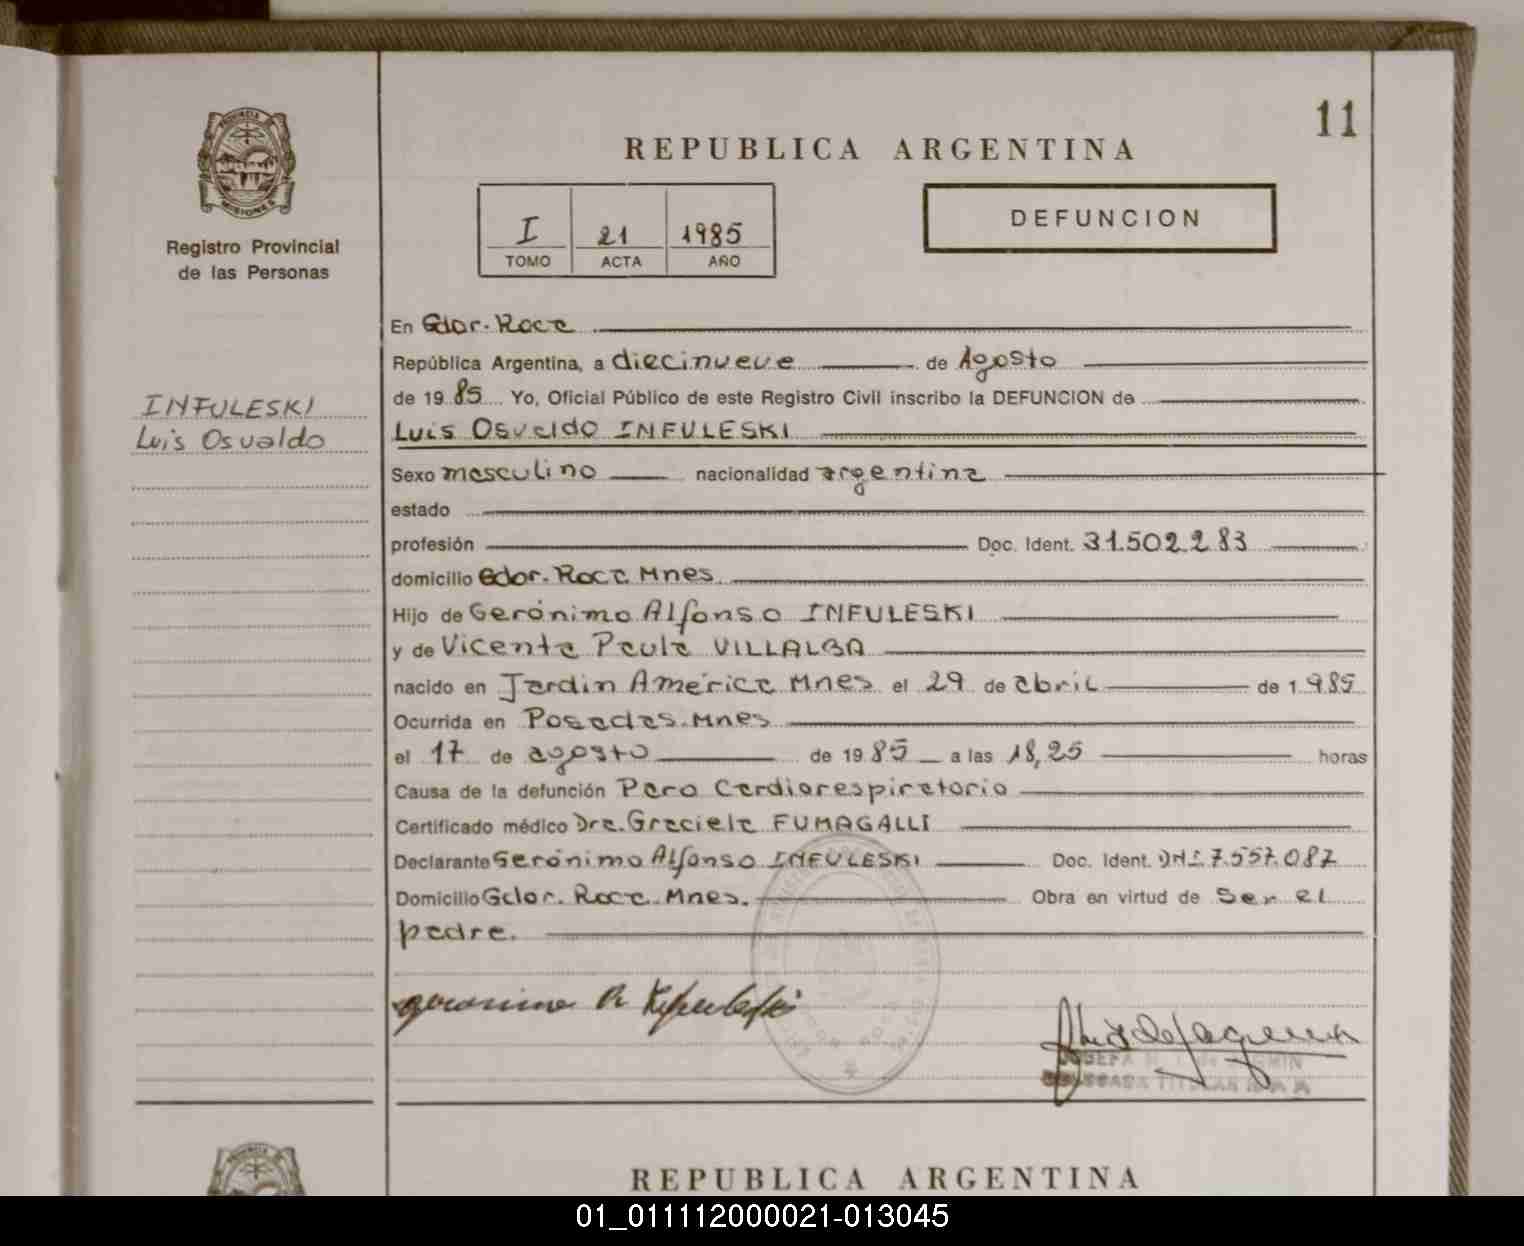 11
REPUBLICA ARGENTINA
PROVINCIA DE
MISIONES
Registro Provincial
de las Personas
I 21 1985
TOMO ACTA AÑO
DEFUNCION
INFULESKI
Luis Osvaldo
En Gdor. Roca
República Argentina, a diecinueve de Agosto
de 1985 Yo, Oficial Público de este Registro Civil inscribo la DEFUNCION de
Luis Osvaldo INFULESKI
Sexo masculino nacionalidad argentina
estado
profesión Doc. Ident. 31.502.283
domicilio Gdor. Roca Mnes
Hijo de Gerónimo Alfonso INFULESKI
y de Vicenta Paula VILLALBA
nacido en Jardin América Mnes el 29 de abril de 1985
Ocurrida en Posadas. Mnes
el 17 de agosto de 1985 a las 18,25 horas
Causa de la defunción Paro Cardiorespiratorio
Certificado médico Dra. Graciela FUMAGALLI
Declarante Gerónimo Alfonso INFULESKI Doc. Ident. DNI 7.557.087
Domicilio Gdor. Roca. Mnes. Obra en virtud de Ser el
padre.
JOSEFA
DELEGADA TITULAR
REPUBLICA ARGENTINA
01_011112000021-013045